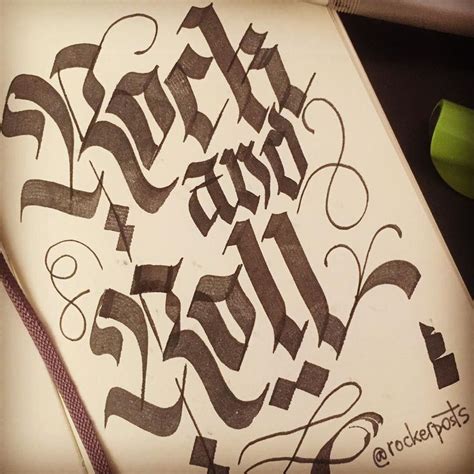 Rock
and
Roll
@rockerposts